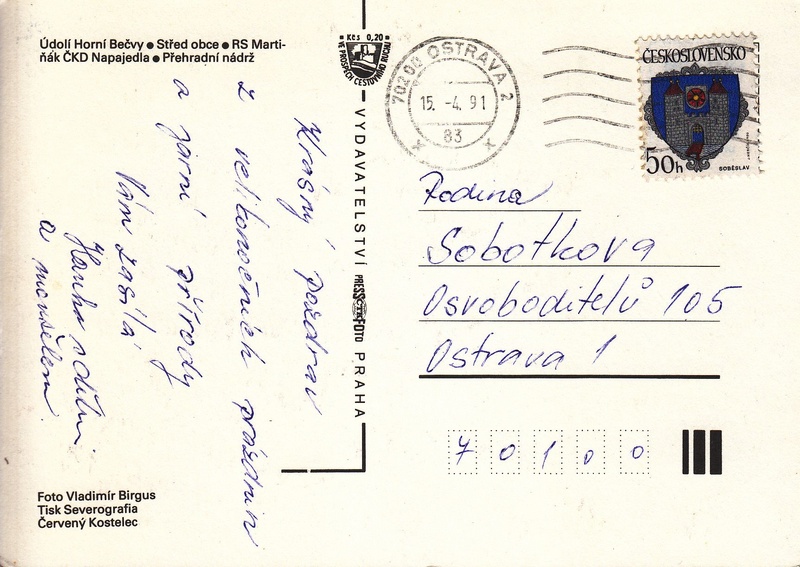 Údolí Horní Bečvy ● Střed obce ● RS Marti-
ňák ČKD Napajedla ● Přehradní nádrž
Krásný pozdrav
z velikonočních prázdnin
a jarní přírody
Vám zasílá
Hanka s dětmi
a manželem.
Foto Vladimír Birgus
Tisk Severografia
Červený Kostelec
Kčs 0,20
VE PROSPĚCH CESTOVNÍHO RUCHU
VYDAVATELSTVÍ PRESSFOTO PRAHA
70200 OSTRAVA 2
15. -4. 91
83
ČESKOSLOVENSKO
50h
SOBĚSLAV
Rodina
Sobotkova
Osvoboditelů 105
Ostrava 1
70100